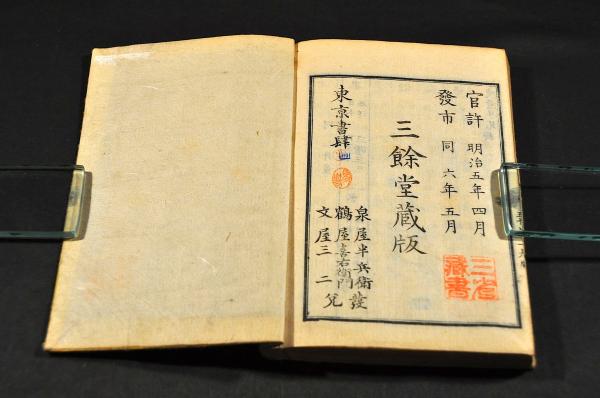 官許 明治五年四月
發市 同 六年五月
三餘堂蔵版
東京書肆
泉屋半兵衛
鶴屋喜右衛門
文屋三二
發兌
三省
藏書